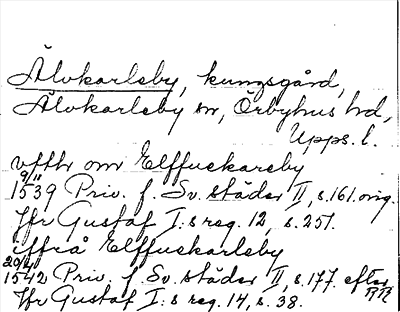 Älvkarleby, kungsgård,
Älvkarleby sn, Örbyhus hd,
Upps. l.
vffth om Elffuckareby
9/11
1539 Priv. f. Sv. städer II, s. 161. orig.
Jfr Gustaf I:s reg. 12, s. 251.
iffrå Elffuckarleby
1542 Priv. f. Sv. städer II, s. 177. efter RR
Jfr Gustaf I:s reg. 14, s. 38.